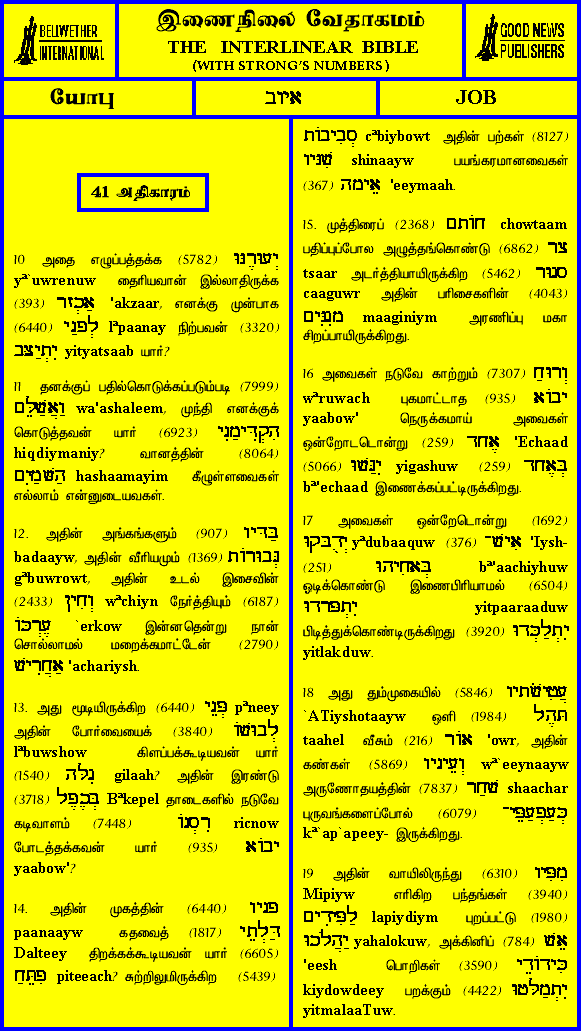 BELLWETHER
INTERNATIONAL
இணைநிலை வேதாகமம்
THE INTERLINEAR BIBLE
(WITH STRONG'S NUMBERS)
GOOD NEWS
PUBLISHERS
யோபு
איוב
JOB
41 அதிகாரம்
10 அதை எழுப்பத்தக்க (5782) יְעוּרֶנּוּ
yª`uwrenuw தைரியவான் இல்லாதிருக்க
(393) אַכְזָר 'akzaar, எனக்கு முன்பாக
(6440) לְפָנַי lªpaanay நிற்பவன் (3320)
יִתְיַצָּב yityatsaab யார்?
11 தனக்குப் பதில்கொடுக்கப்படும்படி (7999)
וַאֲשַׁלֵּם wa'ashaleem, முந்தி எனக்குக்
கொடுத்தவன் யார் (6923) הִקְדִּימַנִי
hiqdiymaniy? வானத்தின் (8064)
הַשָּׁמַיִם hashaamayim கீழுள்ளவைகள்
எல்லாம் என்னுடையவைகள்.
12. அதின் அங்கங்களும் (907) בַּדָּיו
badaayw, அதின் வீரியமும் (1369) גְּבוּרוֹת
gªbuwrowt, அதின் உடல் இசைவின்
(2433) וְחִין wªchiyn நேர்த்தியும் (6187)
עֶרְכּוֹ `erkow இன்னதென்று நான்
சொல்லாமல் மறைக்கமாட்டேன் (2790)
אַחֲרִישׁ 'achariysh.
13. அது மூடியிருக்கிற (6440) פְּנֵי pªneey
அதின் போர்வையைக் (3840) לְבוּשׁוֹ
lªbuwshow கிளப்பக்கூடியவன் யார்
(1540) גִלָּה gilaah? அதின் இரண்டு
(3718) בְּכֶפֶל Bªkepel தாடைகளில் நடுவே
கடிவாளம் (7448) רִסְנוֹ ricnow
போடத்தக்கவன் யார் (935) יבוֹא
yaabow'?
14. அதின் முகத்தின் (6440) פניו
paanaayw கதவைத் (1817) דַּלְתֵי
Dalteey திறக்கக்கூடியவன் யார் (6605)
פִּתֵּחַ piteeach? சுற்றிலுமிருக்கிற (5439)
סְבִיבוֹת cªbiybowt அதின் பற்கள் (8127)
שִׁנָּיו shinaayw பயங்கரமானவைகள்
(367) אֵימה 'eeymaah.
15. முத்திரைப் (2368) חוֹתם chowtaam
பதிப்புப்போல அழுத்தங்கொண்டு (6862) צר
tsaar அடர்த்தியாயிருக்கிற (5462) סגוּר
caaguwr அதின் பரிசைகளின் (4043)
מגִנִּים maaginiym அரணிப்பு மகா
சிறப்பாயிருக்கிறது.
16 அவைகள் நடுவே காற்றும் (7307) וְרוּחַ
wªruwach புகமாட்டாத (935) יבוֹא
yaabow' நெருக்கமாய் அவைகள்
ஒன்றோடடொன்று (259) אֶחד 'Echaad
(5066) יִגַּשׁוּ yigashuw (259) בְּאֶחד
bª'echaad இணைக்கப்பட்டிருக்கிறது.
17 அவைகள் ஒன்றேடொன்று (1692)
יְדֻבּקוּ yªdubaaquw (376) אִישׁ־ 'Iysh-
(251) בְּאחִיהוּ bª'aachiyhuw
ஓடிக்கொண்டு இணைபிரியாமல் (6504)
יִתְפּרדוּ yitpaaraaduw
பிடித்துக்கொண்டிருக்கிறது (3920) יִתְלַכְּדוּ
yitlakduw.
18 அது தும்முகையில் (5846) עֲטִישֹׁתיו
`ATiyshotaayw ஒளி (1984) תּהֶל
taahel வீசும் (216) אוֹר 'owr, அதின்
கண்கள் (5869) וְעֵיניו wª`eeynaayw
அருணோதயத்தின் (7837) שׁחַר shaachar
புருவங்களைப்போல் (6079) כְּעַפְעַפֵּי־
kª`ap`apeey- இருக்கிறது.
19 அதின் வாயிலிருந்து (6310) מִפִּיו
Mipiyw எரிகிற பந்தங்கள் (3940)
לַפִּידִים lapiydiym புறப்பட்டு (1980)
יַהֲלֹכוּ yahalokuw, அக்கினிப் (784) אֵשׁ
'eesh பொறிகள் (3590) כִּידוֹדֵי
kiydowdeey பறக்கும் (4422) יִתְמַלּטוּ
yitmalaaTuw.